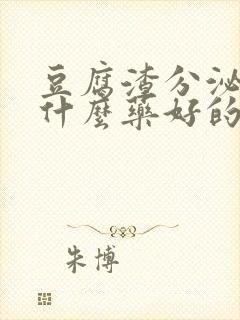 豆腐渣分泌
什麼藥好的
朱博